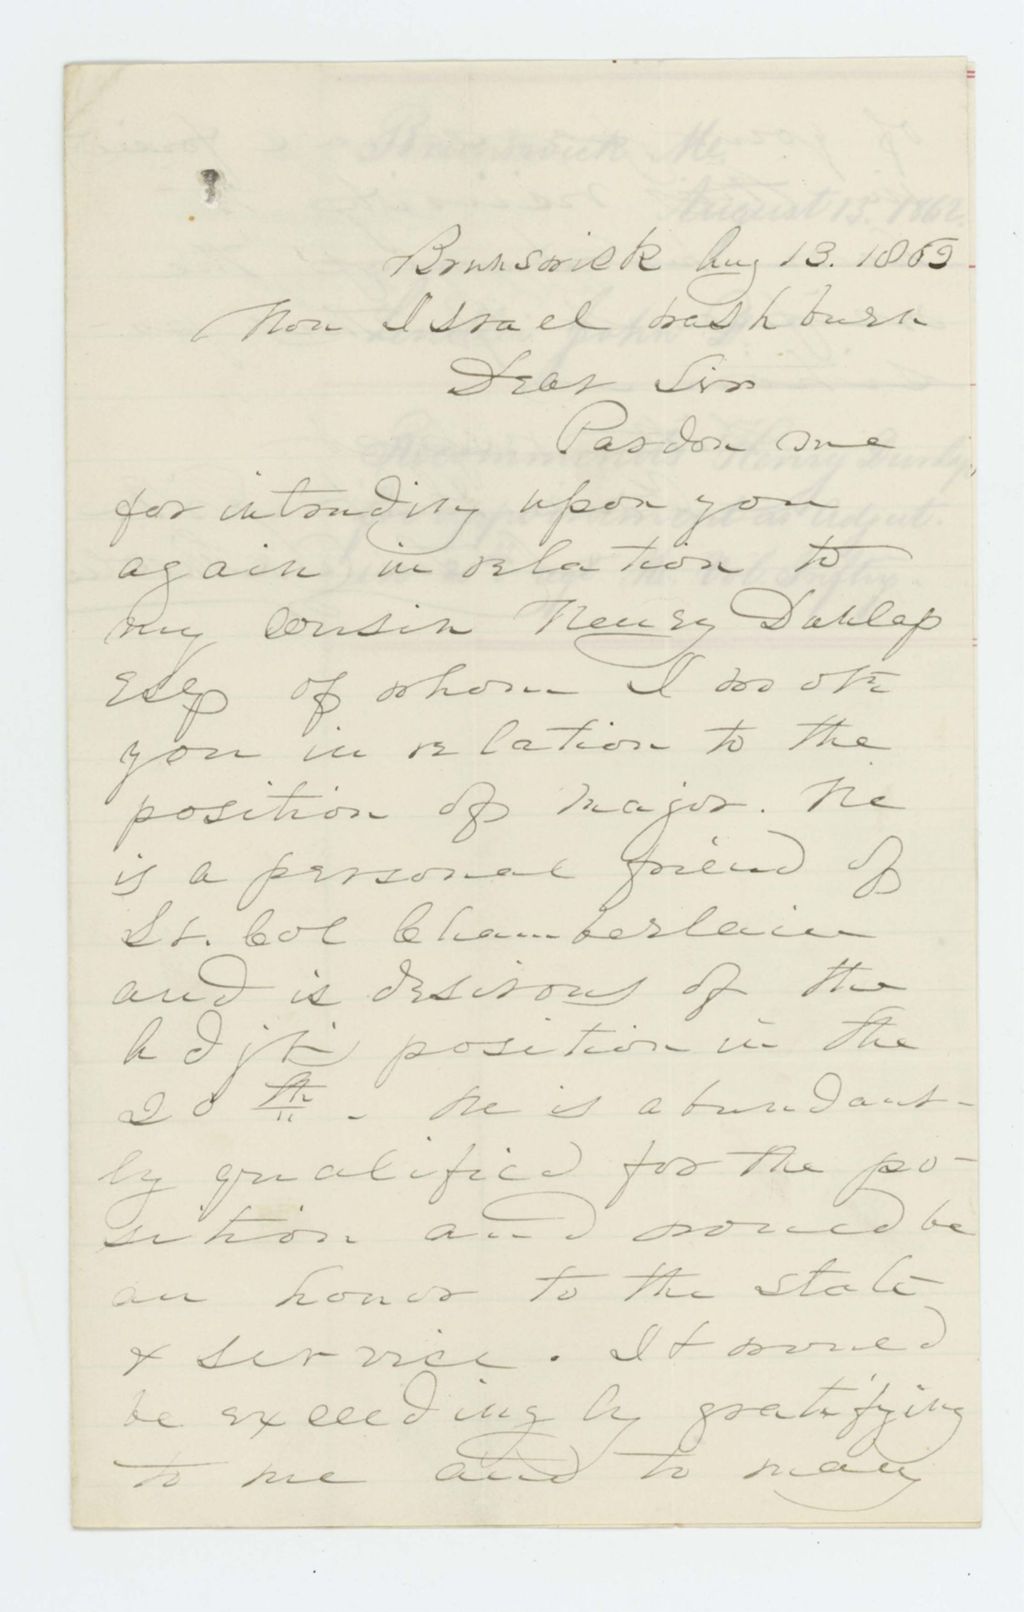 Brunswick Aug 13. 1862
Hon Israel Washburn
Dear Sir
Pardon me
for intruding upon you
again in relation to
my cousin Henry Dunlap
Esq of whom I wrote
you in relation to the
position of Major. He
is a personal friend of
Lt. Col Chamberlain
and is desirous of the
Adjt position in the
20th. He is abundant-
ly qualified for the po-
sition and would be
an honor to the State
& service. It would
be exceedingly gratifying
to me and to many
Brunswick Me.
August 13. 1862
Recommends Henry Dunlap